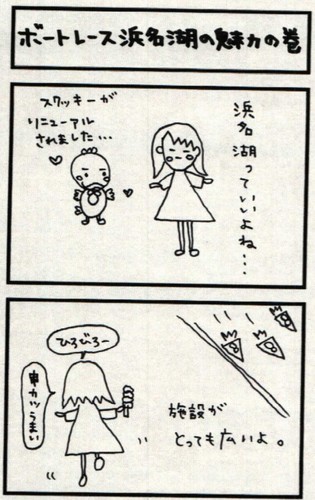 ボートレース浜名湖の魅力の巻
浜名湖っていいよね…
スワッキーが
リニューアル
されました…
ひろびろー
串カツうまい
施設が
とっても広いよ。